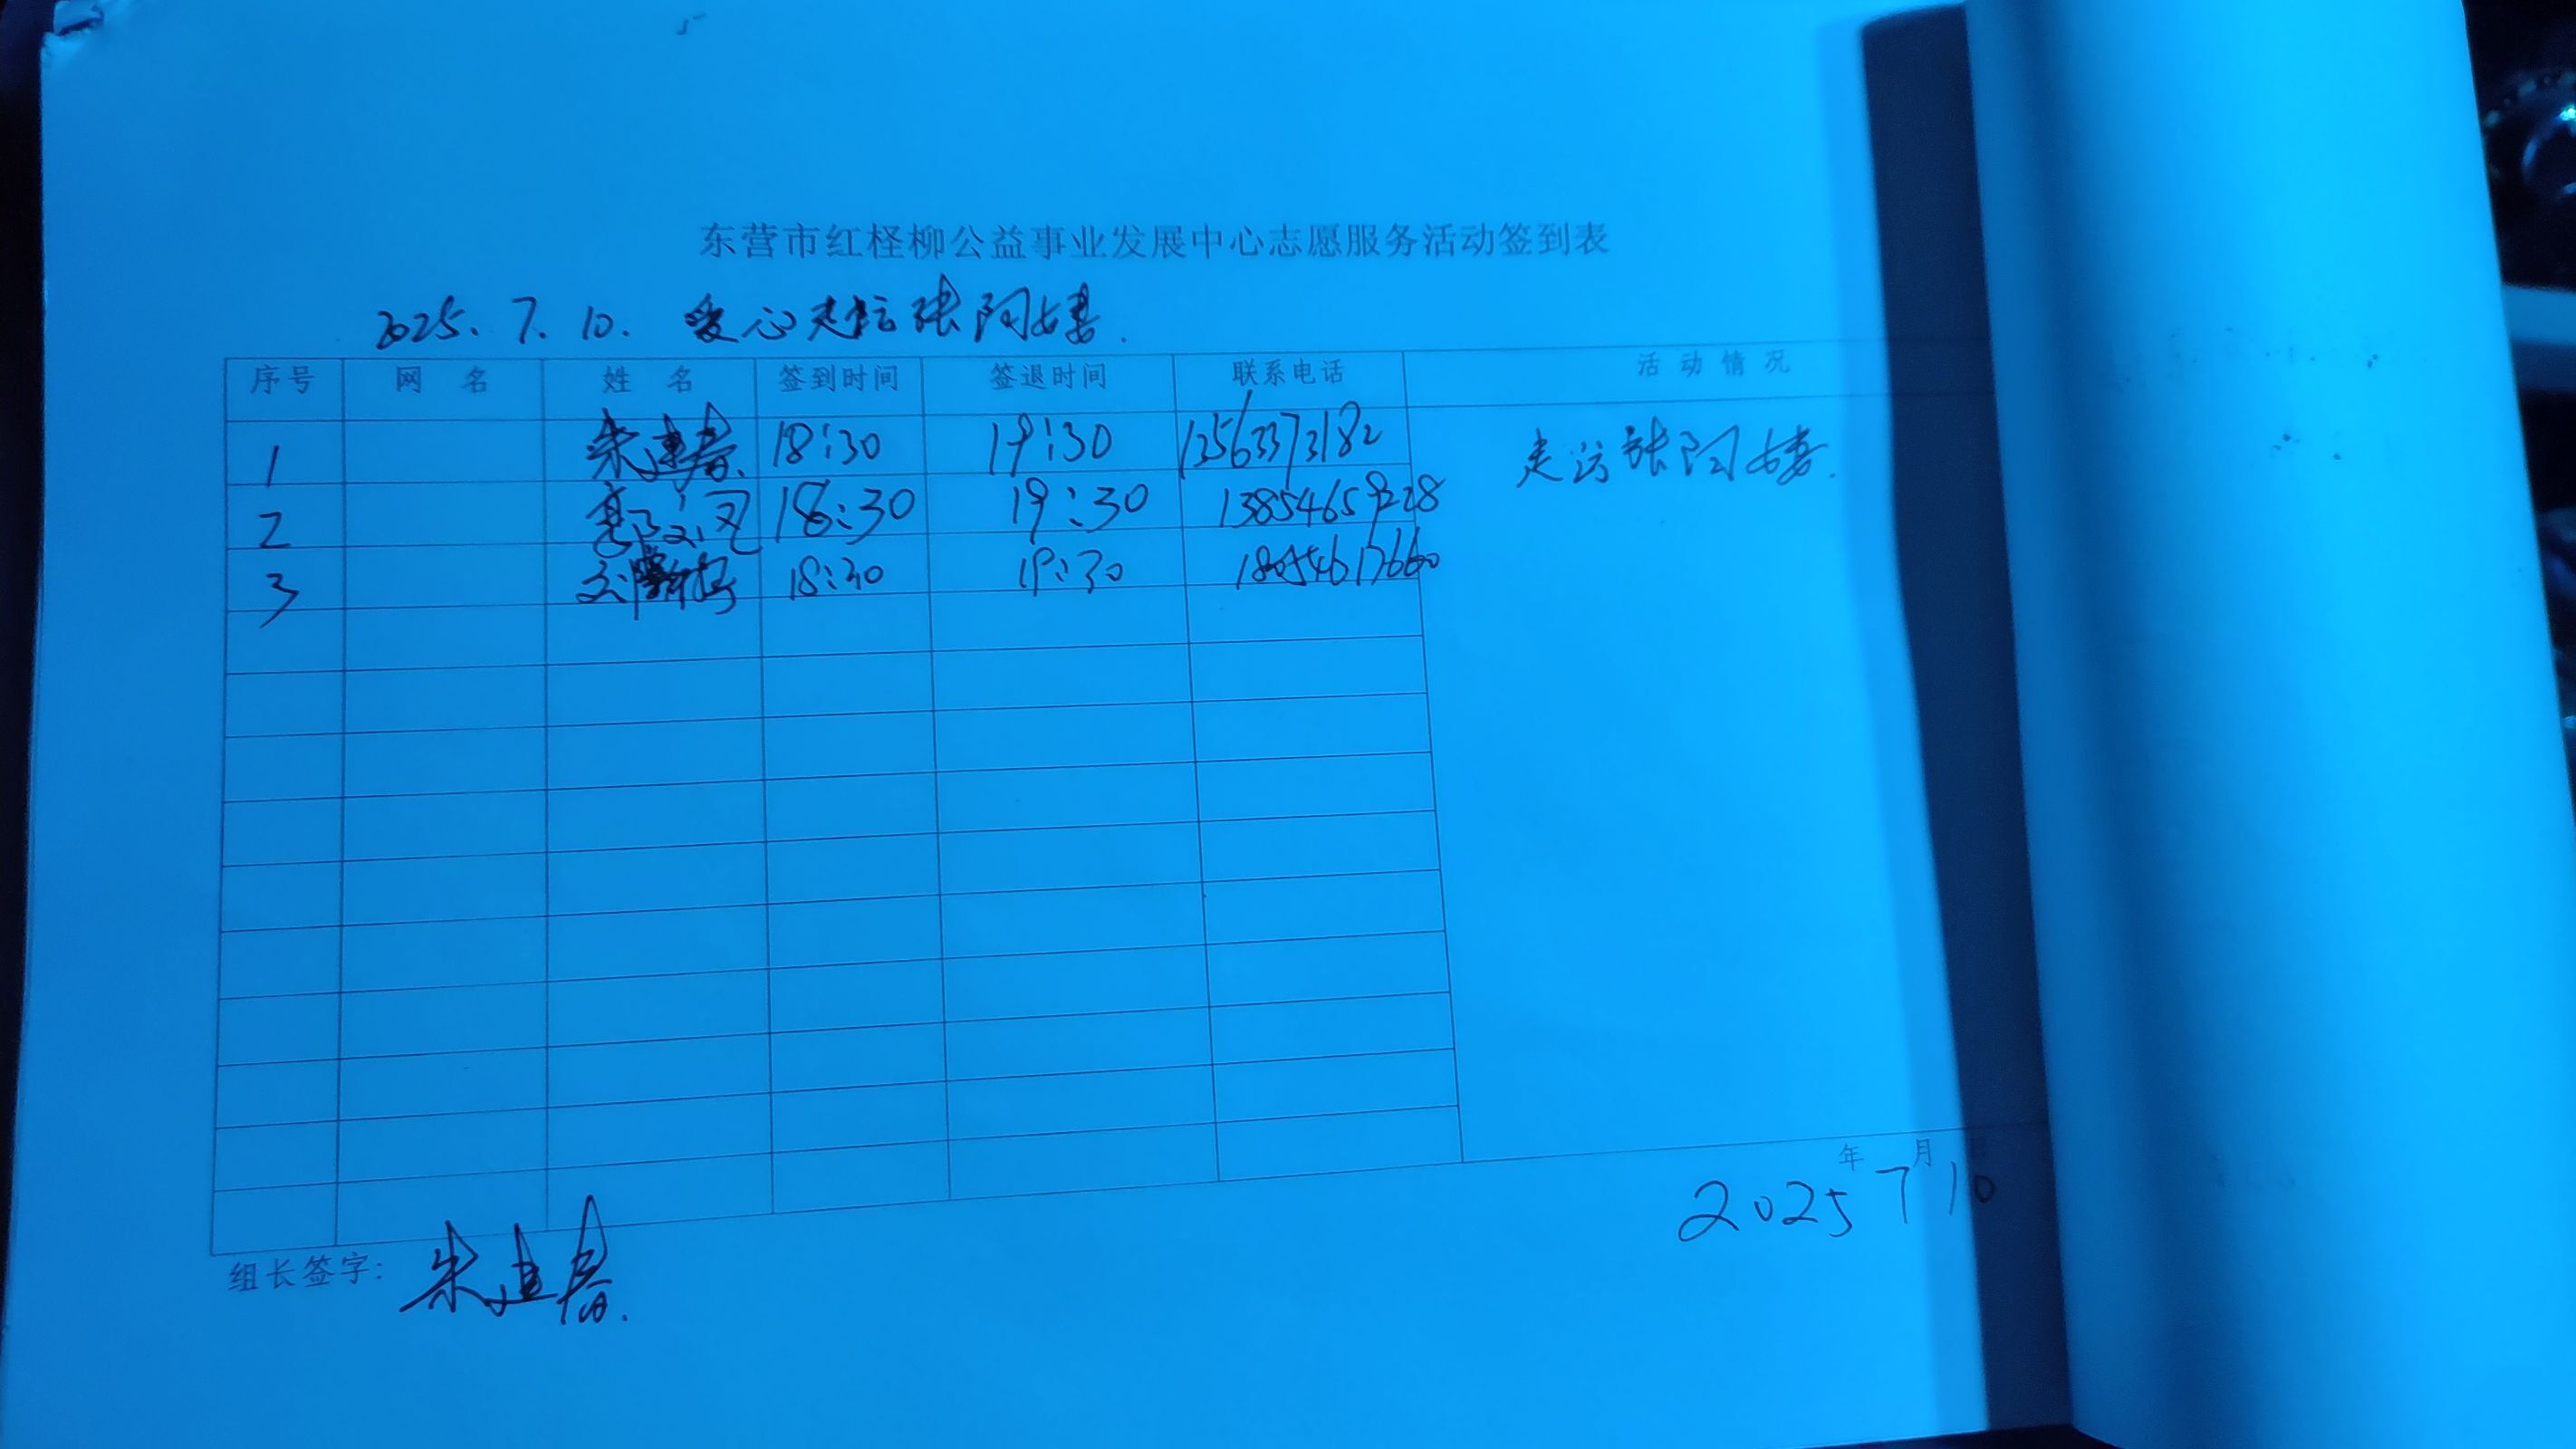 东营市红柽柳公益事业发展中心志愿服务活动签到表
2025.7.10. 爱心走访张阿姨.
序号 网 名 姓 名 签到时间 签退时间 联系电话 活 动 情 况
1 朱建春 18:30 19:30 13563373182 走访张阿姨.
2 18:30 19:30 13854659228
3 18:30 19:30 18054617660
年 月 日
2025 7 10
组长签字: 朱建春.